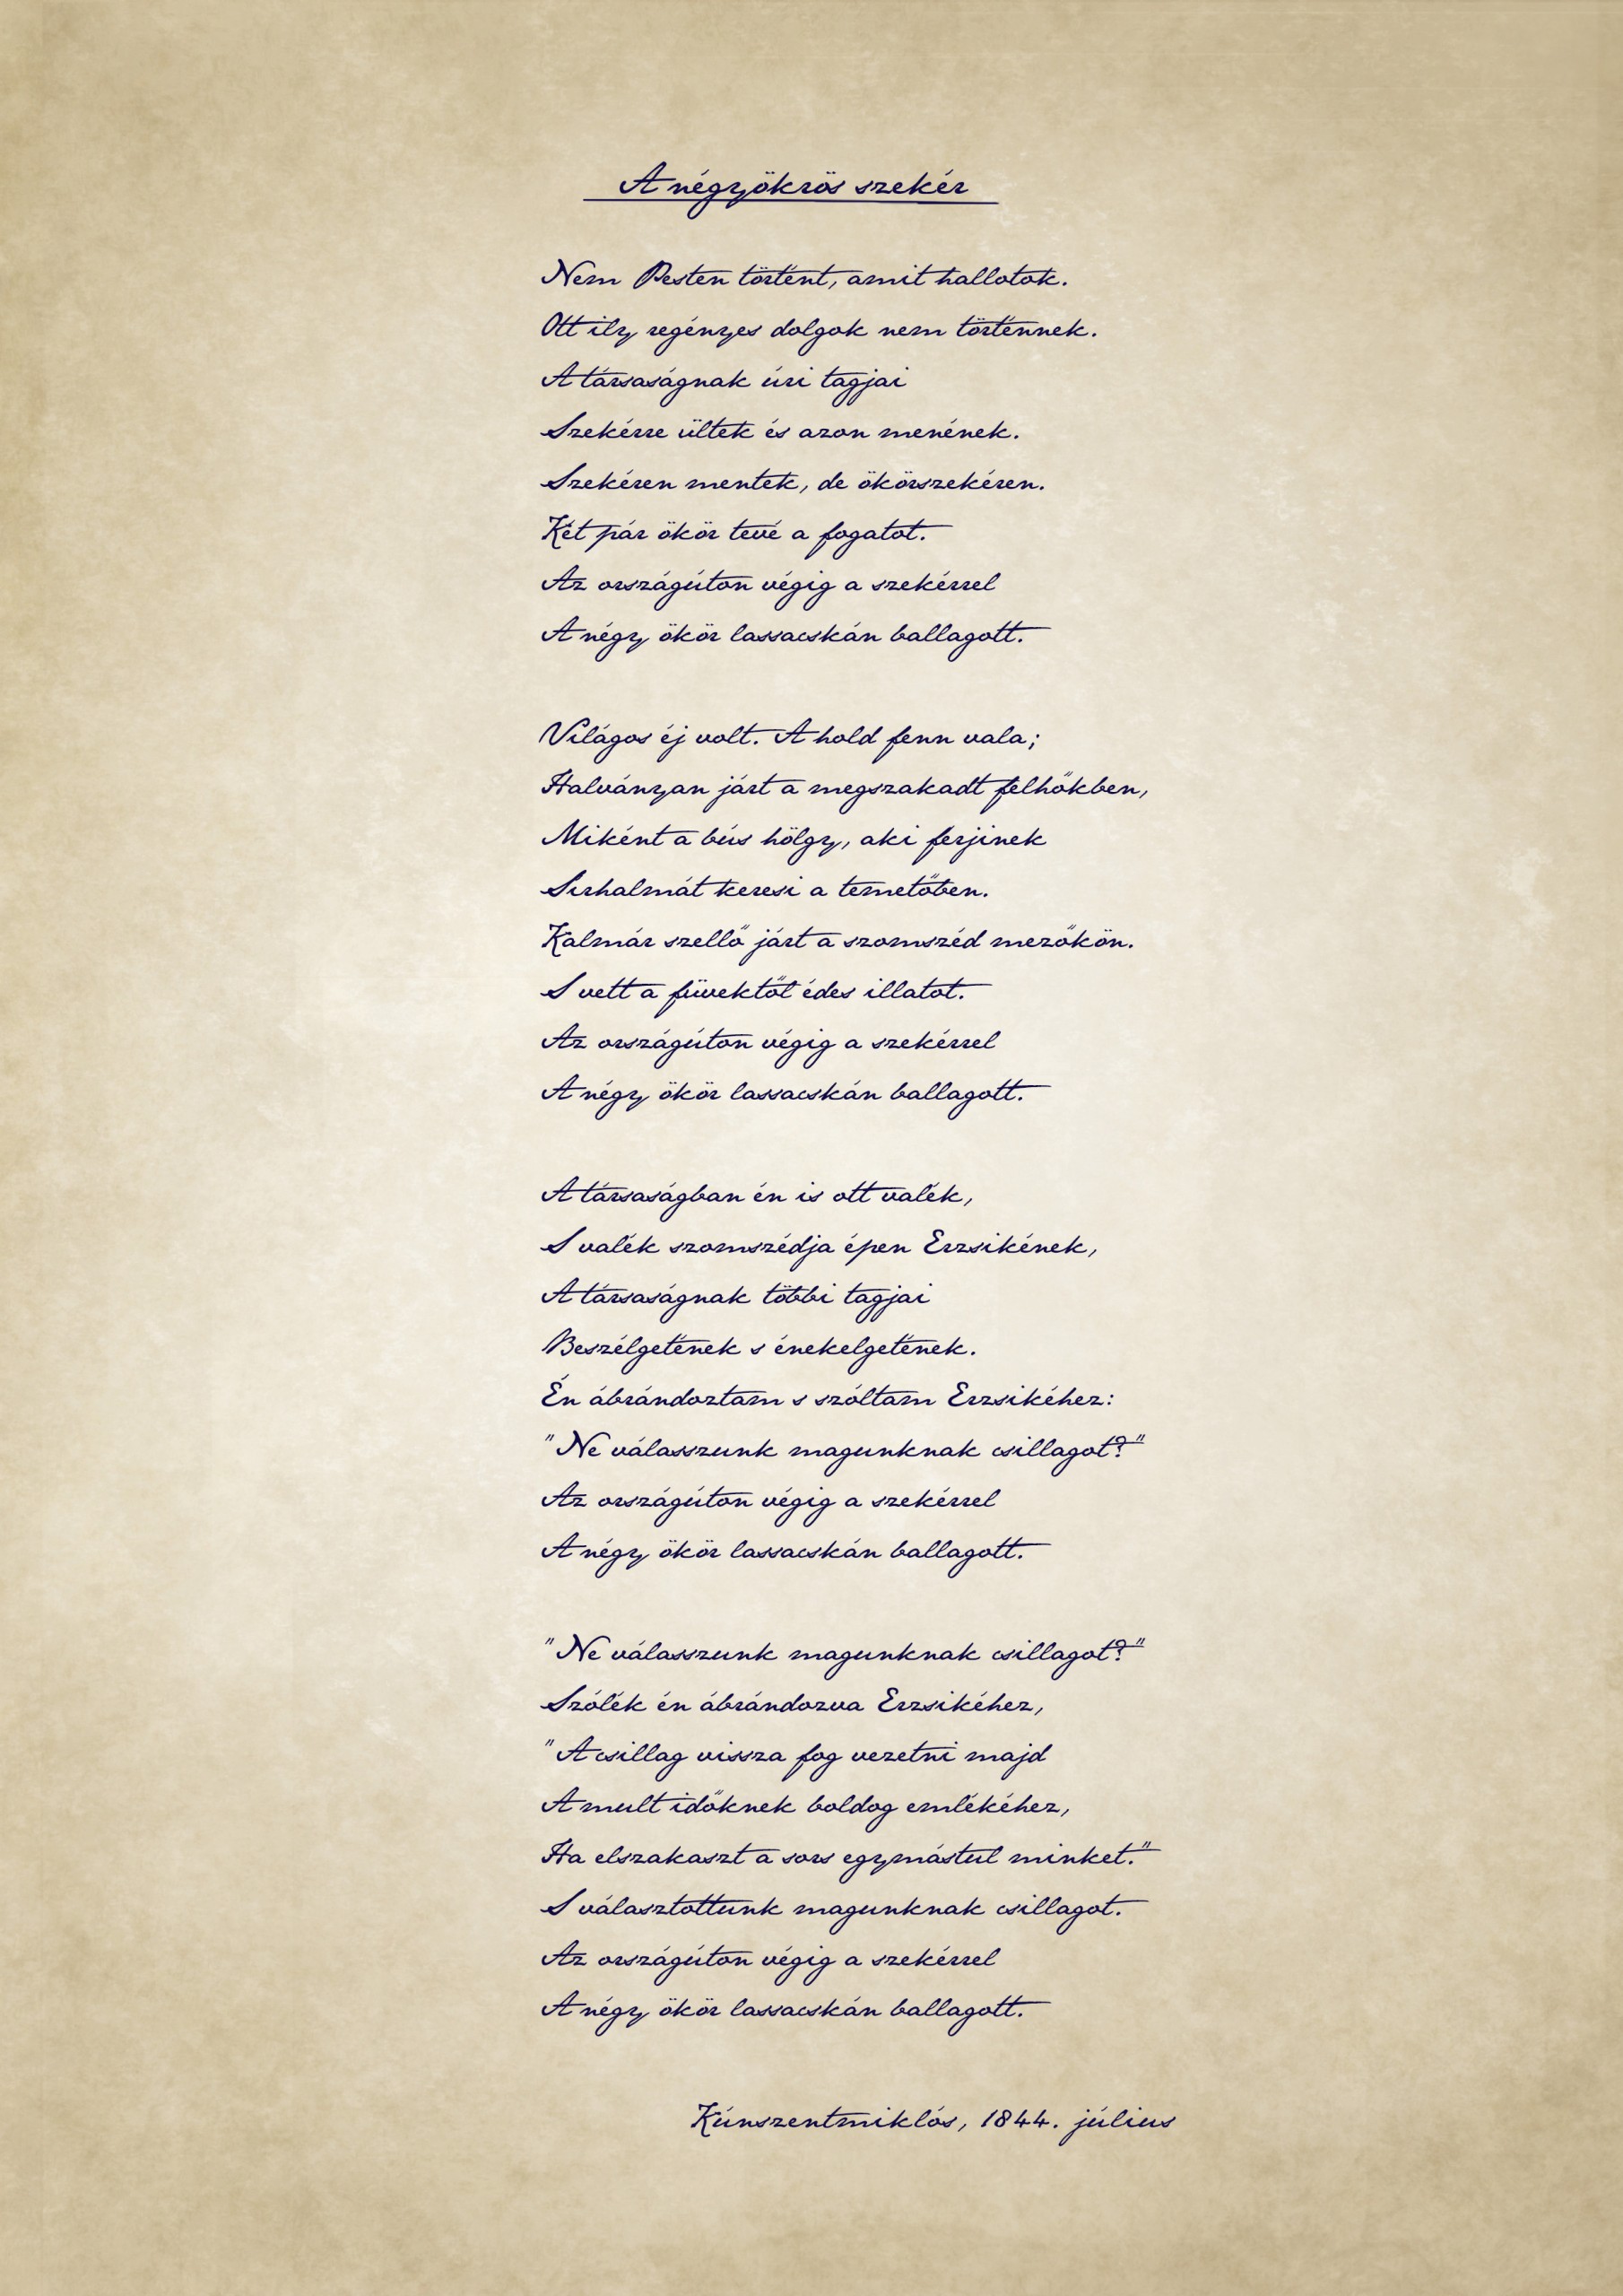 A négyökrös szekér
Nem Pesten történt, amit hallotok.
Ott ily regényes dolgok nem történnek.
A társaságnak úri tagjai
Szekérre ültek és azon menének.
Szekéren mentek, de ökörszekéren.
Két pár ökör tevé a fogatot.
Az országúton végig a szekérrel
A négy ökör lassacskán ballagott.
Világos éj volt. A hold fenn vala;
Halványan járt a megszakadt felhőkben,
Miként a bús hölgy, aki ferjinek
Sirhalmát keresi a temetőben.
Kalmár szellő járt a szomszéd mezőkön.
S vett a füvektől édes illatot.
Az országúton végig a szekérrel
A négy ökör lassacskán ballagott.
A társaságban én is ott valék,
S valék szomszédja épen Erzsikének,
A társaságnak többi tagjai
Beszélgetének s énekelgetének.
Én ábrándoztam s szóltam Erzsikéhez:
"Ne válasszunk magunknak csillagot?"
Az országúton végig a szekérrel
A négy ökör lassacskán ballagott.
"Ne válasszunk magunknak csillagot?"
Szólék én ábrándozva Erzsikéhez,
"A csillag vissza fog vezetni majd
A mult időknek boldog emlékéhez,
Ha elszakaszt a sors egymástul minket."
S választottunk magunknak csillagot.
Az országúton végig a szekérrel
A négy ökör lassacskán ballagott.
Kúnszentmiklós, 1844. július